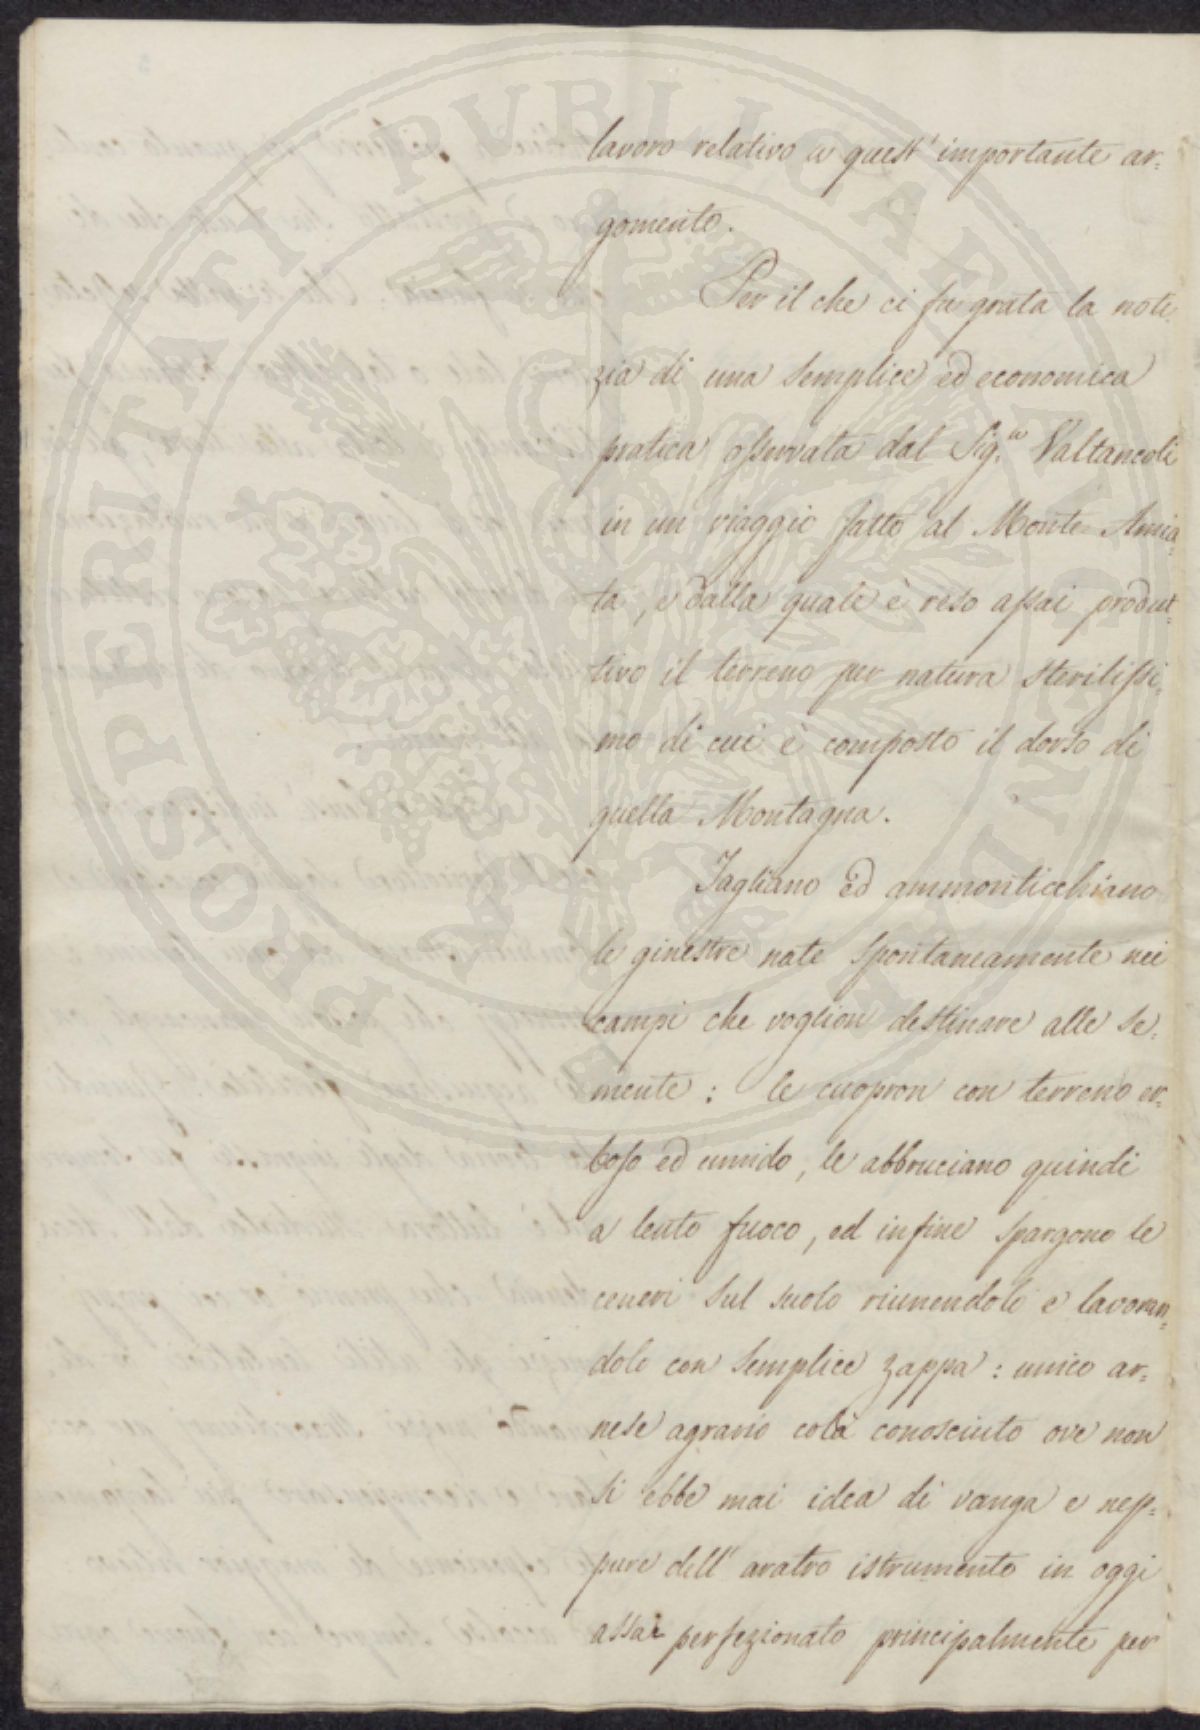 lavoro relativo a quest' importante ar=
gomento.
Per il che ci fu grata la noti=
zia di una semplice ed economica
pratica osservata dal Sig.e Valtancoli
in un viaggio fatto al Monte Amia=
ta, e dalla quale è reso assai produt=
tivo il terreno per natura sterilissi=
mo di cui è composto il dorso di
quella Montagna.
Tagliano ed ammonticchiano
le ginestre nate spontaneamente nei
campi che voglion destinare alle se=
mente: le cuopron con terreno er=
boso ed umido, le abbruciano quindi
a lento fuoco, ed infine spargono le
ceneri sul suolo riunendole e lavoran=
dole con semplice zappa: unico ar=
nese agrario colà conosciuto ove non
si ebbe mai idea di vanga e nep=
pure dell' aratro istrumento in oggi
assai perfezionato principalmente per
PROSPERITATI PUBLICAE AUGENDAE